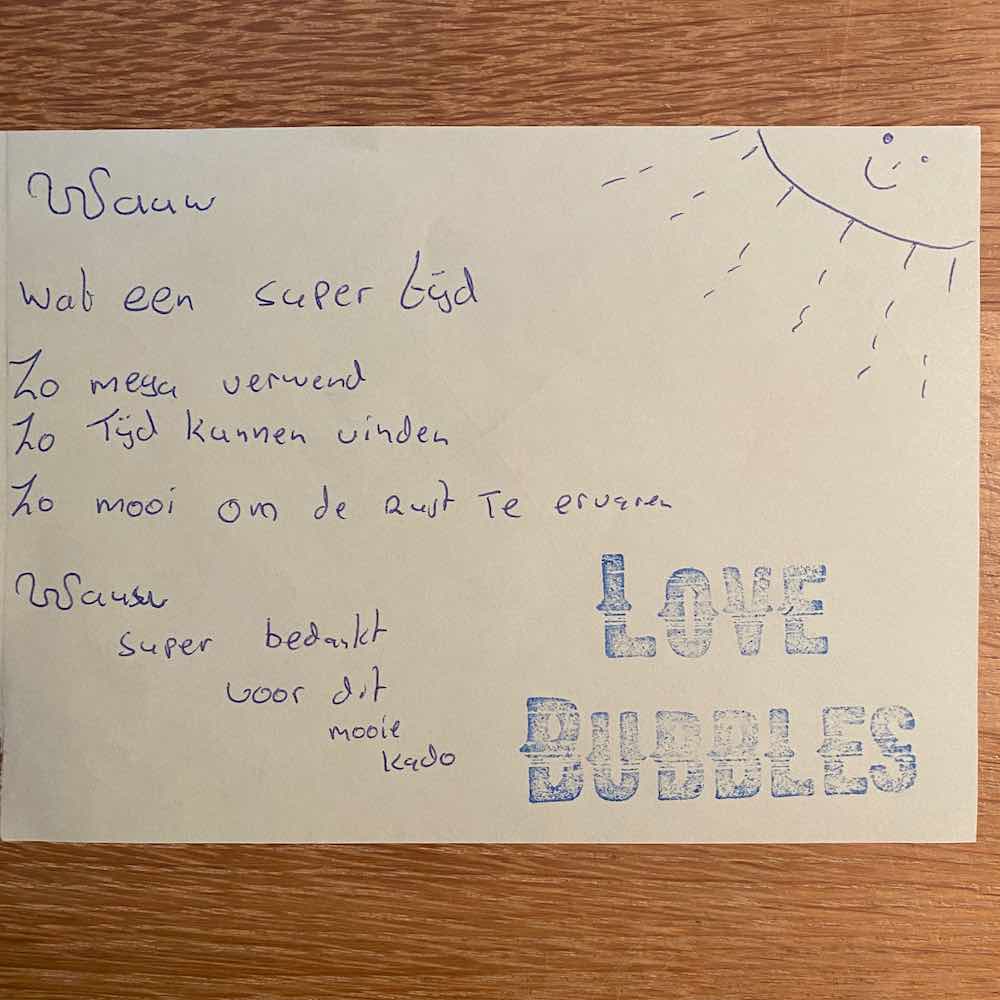 Wauw
wat een super tijd
Zo mega verwend
Zo Tijd kunnen vinden
Zo mooi om de rust Te ervaren
Wauw
super bedankt
voor dit
mooie
kado
LOVE
BUBBLES